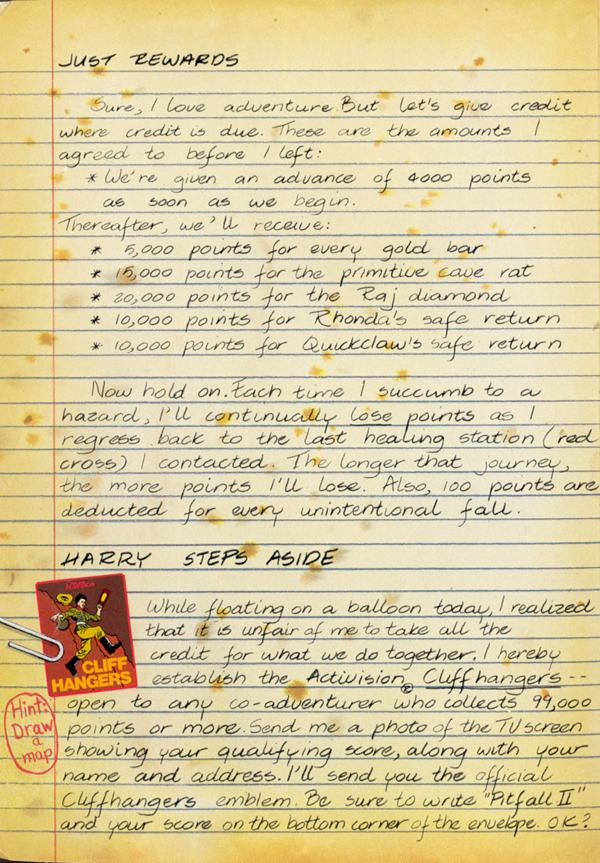 JUST REWARDS
Sure, I love adventure. But let's give credit
where credit is due. These are the amounts I
agreed to before I left:
* We're given an advance of 4000 points
as soon as we begin.
Thereafter, we'll receive:
* 5,000 points for every gold bar
* 15,000 points for the primitive cave rat
* 20,000 points for the Raj diamond
* 10,000 points for Rhonda's safe return
* 10,000 points for Quickclaw's safe return
Now hold on. Each time I succumb to a
hazard, I'll continually lose points as I
regress back to the last healing station (red
cross) I contacted. The longer that journey,
the more points I'll lose. Also, 100 points are
deducted for every unintentional fall.
HARRY STEPS ASIDE
While floating on a balloon today, I realized
that it is unfair of me to take all the
credit for what we do together. I hereby
establish the Activision® Cliffhangers --
open to any co-adventurer who collects 99,000
points or more. Send me a photo of the TV screen
showing your qualifying score, along with your
name and address. I'll send you the official
Cliffhangers emblem. Be sure to write "Pitfall II"
and your score on the bottom corner of the envelope. OK?
ACTIVISION
CLIFF
HANGERS
Hint:
Draw
a
map